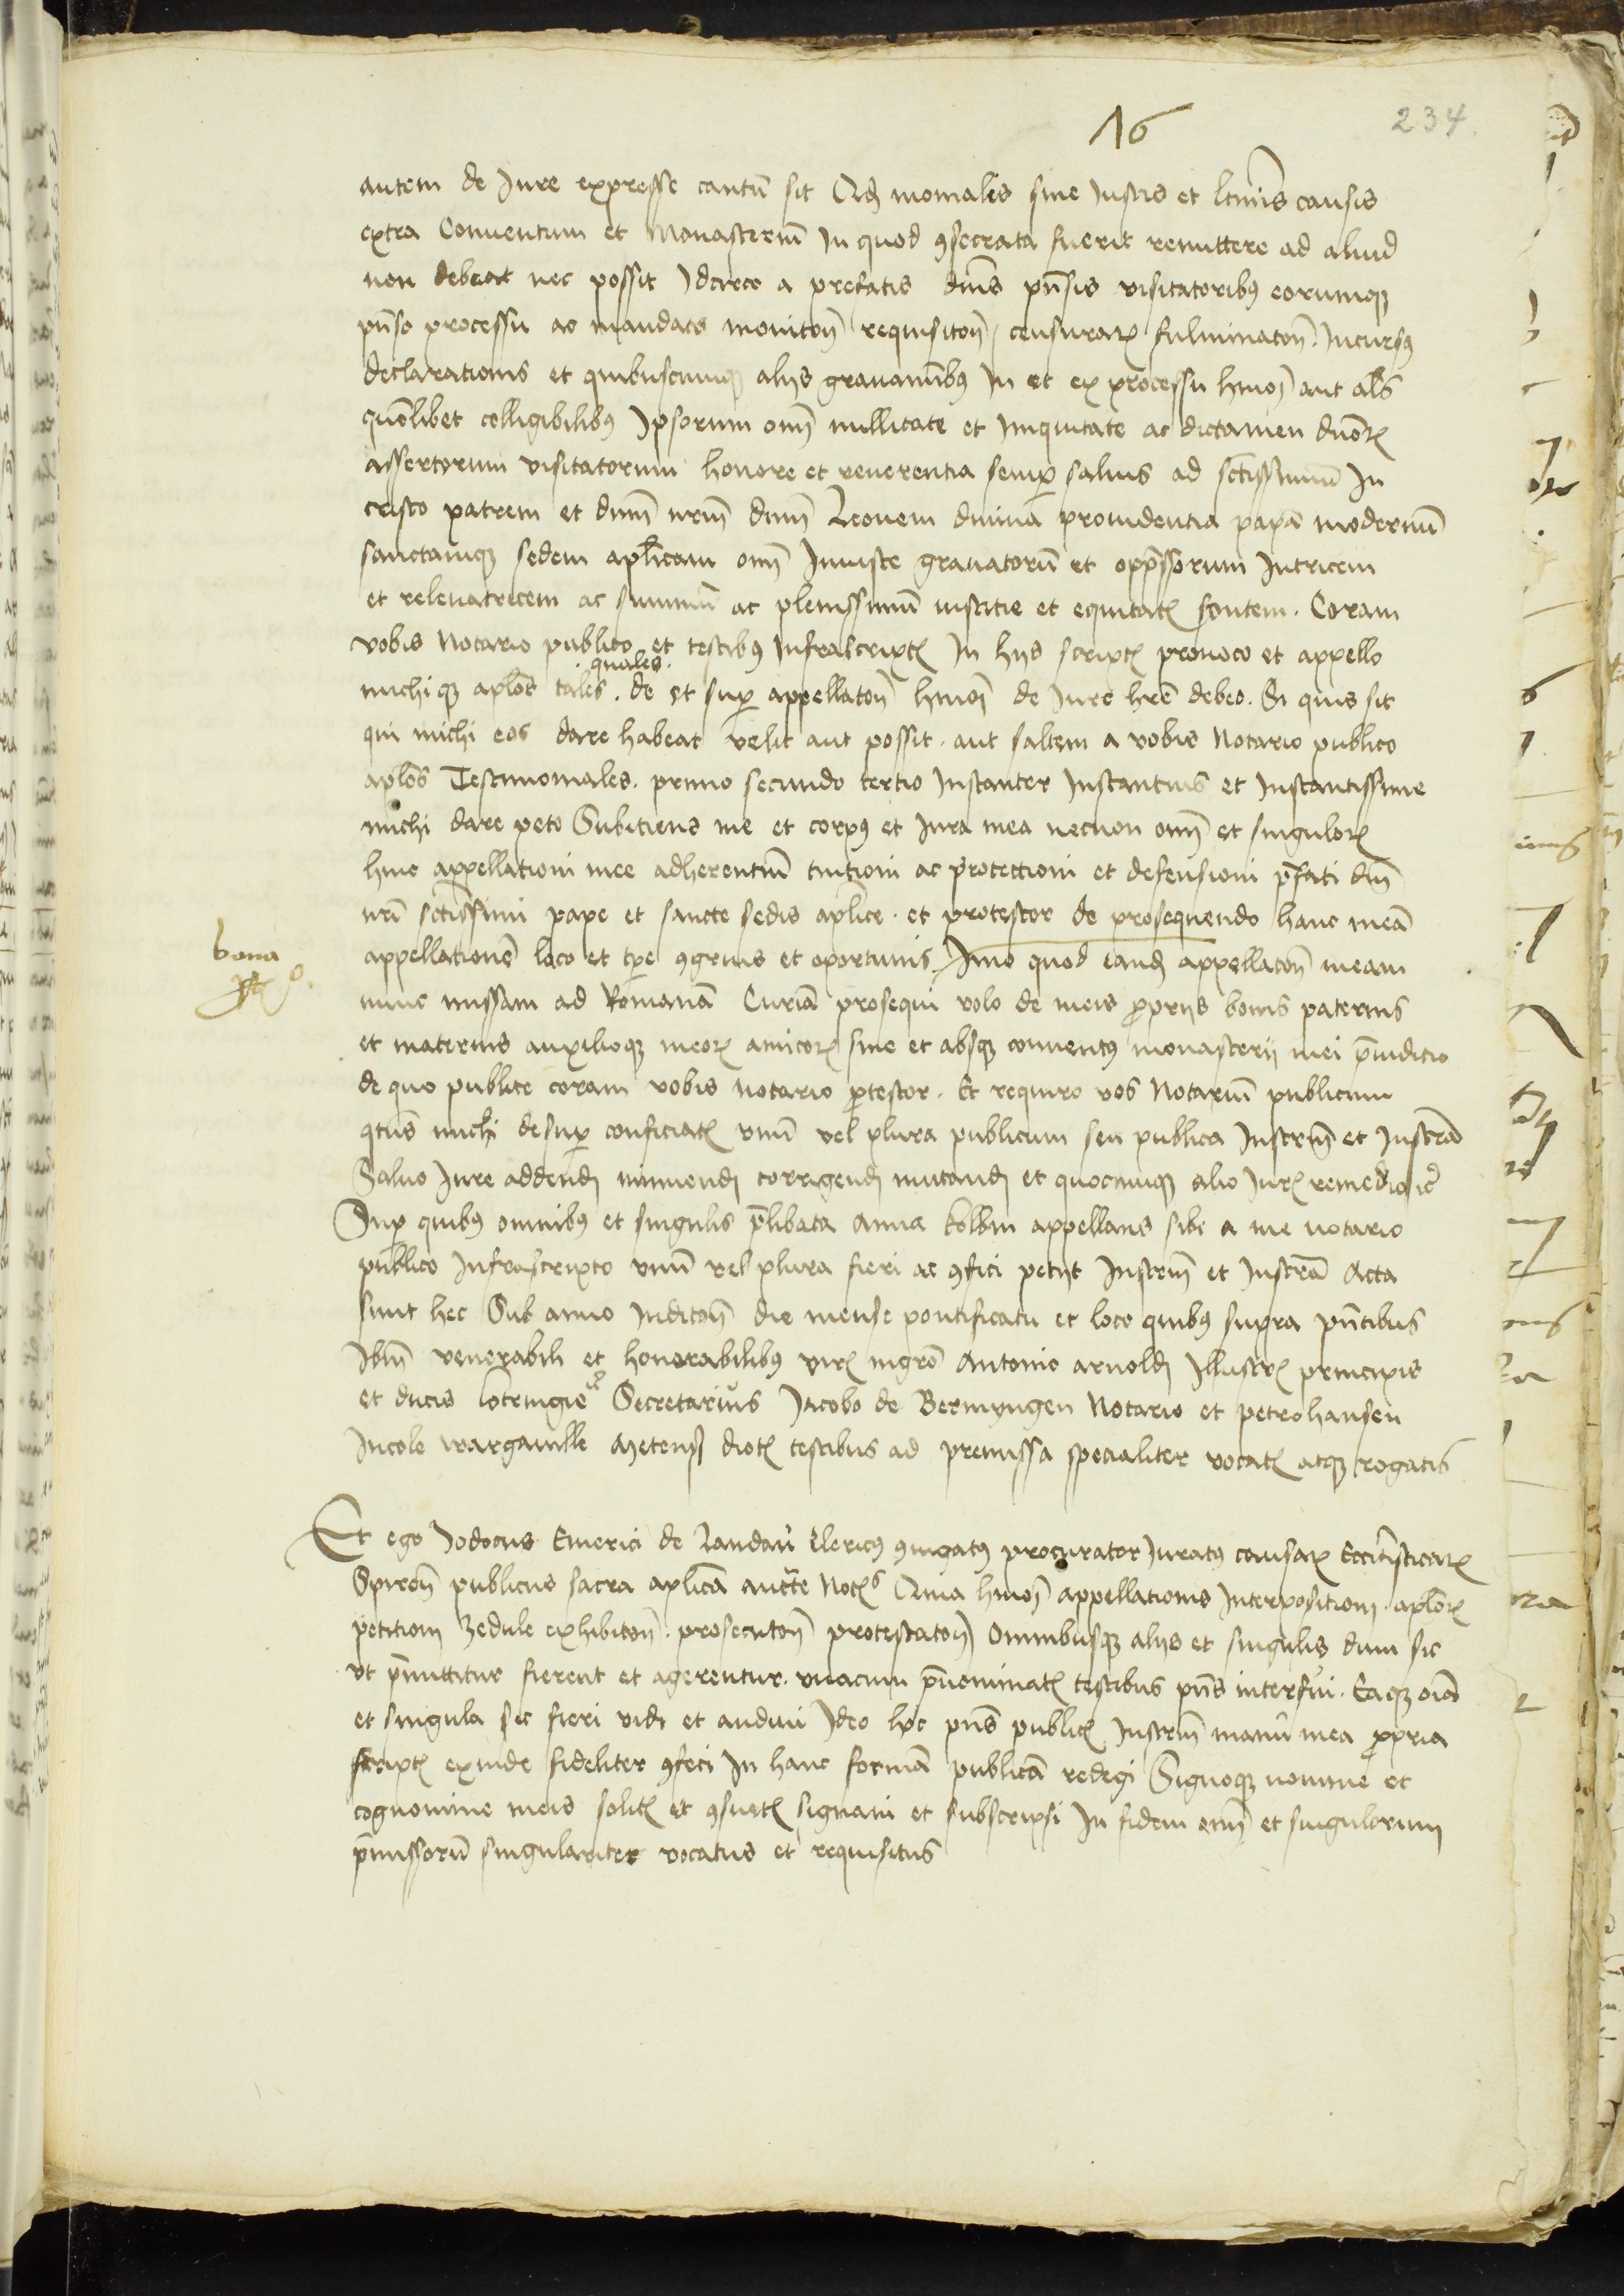 16
234
autem de Jure expresse cautū sit Qđ moniales sine Justis et ltimis causis
extra Conuentum et Monasteriū in quod ꝯsecrata fuerit remittere ad aliud
non debeat nec possit Idcirco a prefatis dnis pn̄sis visitatoribꝰ eorumqꝫ
pn̄so processu ac mandato moniton̄ requisiton̄ / censuraꝝ fulminaton̄. Incursꝰ
declarationis et quibuscumqꝫ alijs grauaminibꝰ in et ex processu hmōi aut als
quōlibet colligibilibꝰ Ipsorum om̄i nullitate et iniquitate ac dictamen dn̄oꝝ
assertorum visitatorum honore et reuerentia semꝑ saluis ad sctissimū In
cristo patrem et dnm̄ nrm̄ dnm̄ Leonem diuina prouidentia papā modernū
sanctamqꝫ sedem apl̄icam om̄i Iniuste grauatorū et opp̄ssorum Intricem
et releuatricem ac summū ac plenissimū iusticie et equitatꝭ fontem. Coram
vobis Notario publico et testibꝰ Infrascriptꝭ In hijs scriptꝭ prouoco et appello
quales.
michiqꝫ apl̄os tales. de et suꝑ appellaton̄ hmōi de Jure hr̄e debeo. Si quis sit
qui michi eos dare habeat velit aut possit. aut saltem a vobis Notario publico
apl̄os Testimoniales. primo secundo tertio Instanter Instantius et Instantissime
michi dare peto Subiciens me et corpꝰ et Jura mea necnon om̄i et singuloꝝ
huic appellationi mee adherentiū tuitioni ac protectioni et defensioni p̄fati dn̄i
nr̄i sctissimi pape et sancte sedis apl̄ice. et protestor de prosequendo hanc meā
appellationē loco et tꝑe ꝯgruis et oportunis. Imo quod eandē appellacōn meam
bona
nunc missam ad Romanā Curiā prosequi volo de meis ꝓprijs bonis paternis
et maternis auxilioqꝫ meoꝝ amicoꝝ sine et absqꝫ conuentꝰ monasterij mei p̄iuditio
de quo publice coram vobis notario ꝓtestor. Et requiro vos Notariū publicum
qtus michi desuꝑ conficiatꝭ vnū vel plura publicum seu publica Instrm̄ et Instrā
Saluo Jure addendi minuendi corrigendi mutandi et quocumqꝫ alio Jurꝭ remedio
Suꝑ quibꝰ omnibꝰ et singulis p̄libata Anna kolbin appellans sibi a me notario
publico Infrascripto vnū vel plura fieri ac ꝯfici petijt Instrm̄ et Instrā Acta
sunt hec Sub anno Indicton̄ die mense pontificatu et loco quibꝰ supra pn̄tibus
Ibm̄ venerabili et honorabilibꝰ virꝭ mgro Antonio arnoldi Illustrꝭ principis
et ducis lotringie Secretarius Jacobo de Bermyngen Notario et petrohansen
Incole wargauille Metensꝭ diocꝭ testibus ad premissa specialiter vocatꝭ atqꝫ rogatis
Et ego Jodocus Emerici de Landau Clericꝰ ꝯiugatꝰ procurator Juratꝰ causaꝝ Ecclīasticaꝝ
Spiren̄ publicus sacra apl̄ica aucte Notꝭ Quia hmōi appellationis Interpositioni. apl̄oꝝ
petitioni Zedule exhibiton̄. prosecuton̄ protestaton̄ Omnibusqꝫ alijs et singulis dum sic
vt p̄mittitur fierent et agerentur. vnacum p̄nominatꝭ testibus pn̄s interfui. Eaqꝫ oīa
et singula sic fieri vidi et audiui Ideo hoc pn̄s publicꝭ Instrm̄ manu mea ꝓpria
scriptꝭ exinde fideliter ꝯfeci In hanc formā publicā redegi Signoqꝫ nomine et
cognomine meis solitꝭ et ꝯsuetꝭ signaui et subscripsi In fidem om̄i et singulorum
p̄missorū singulariter vocatus et requisitus